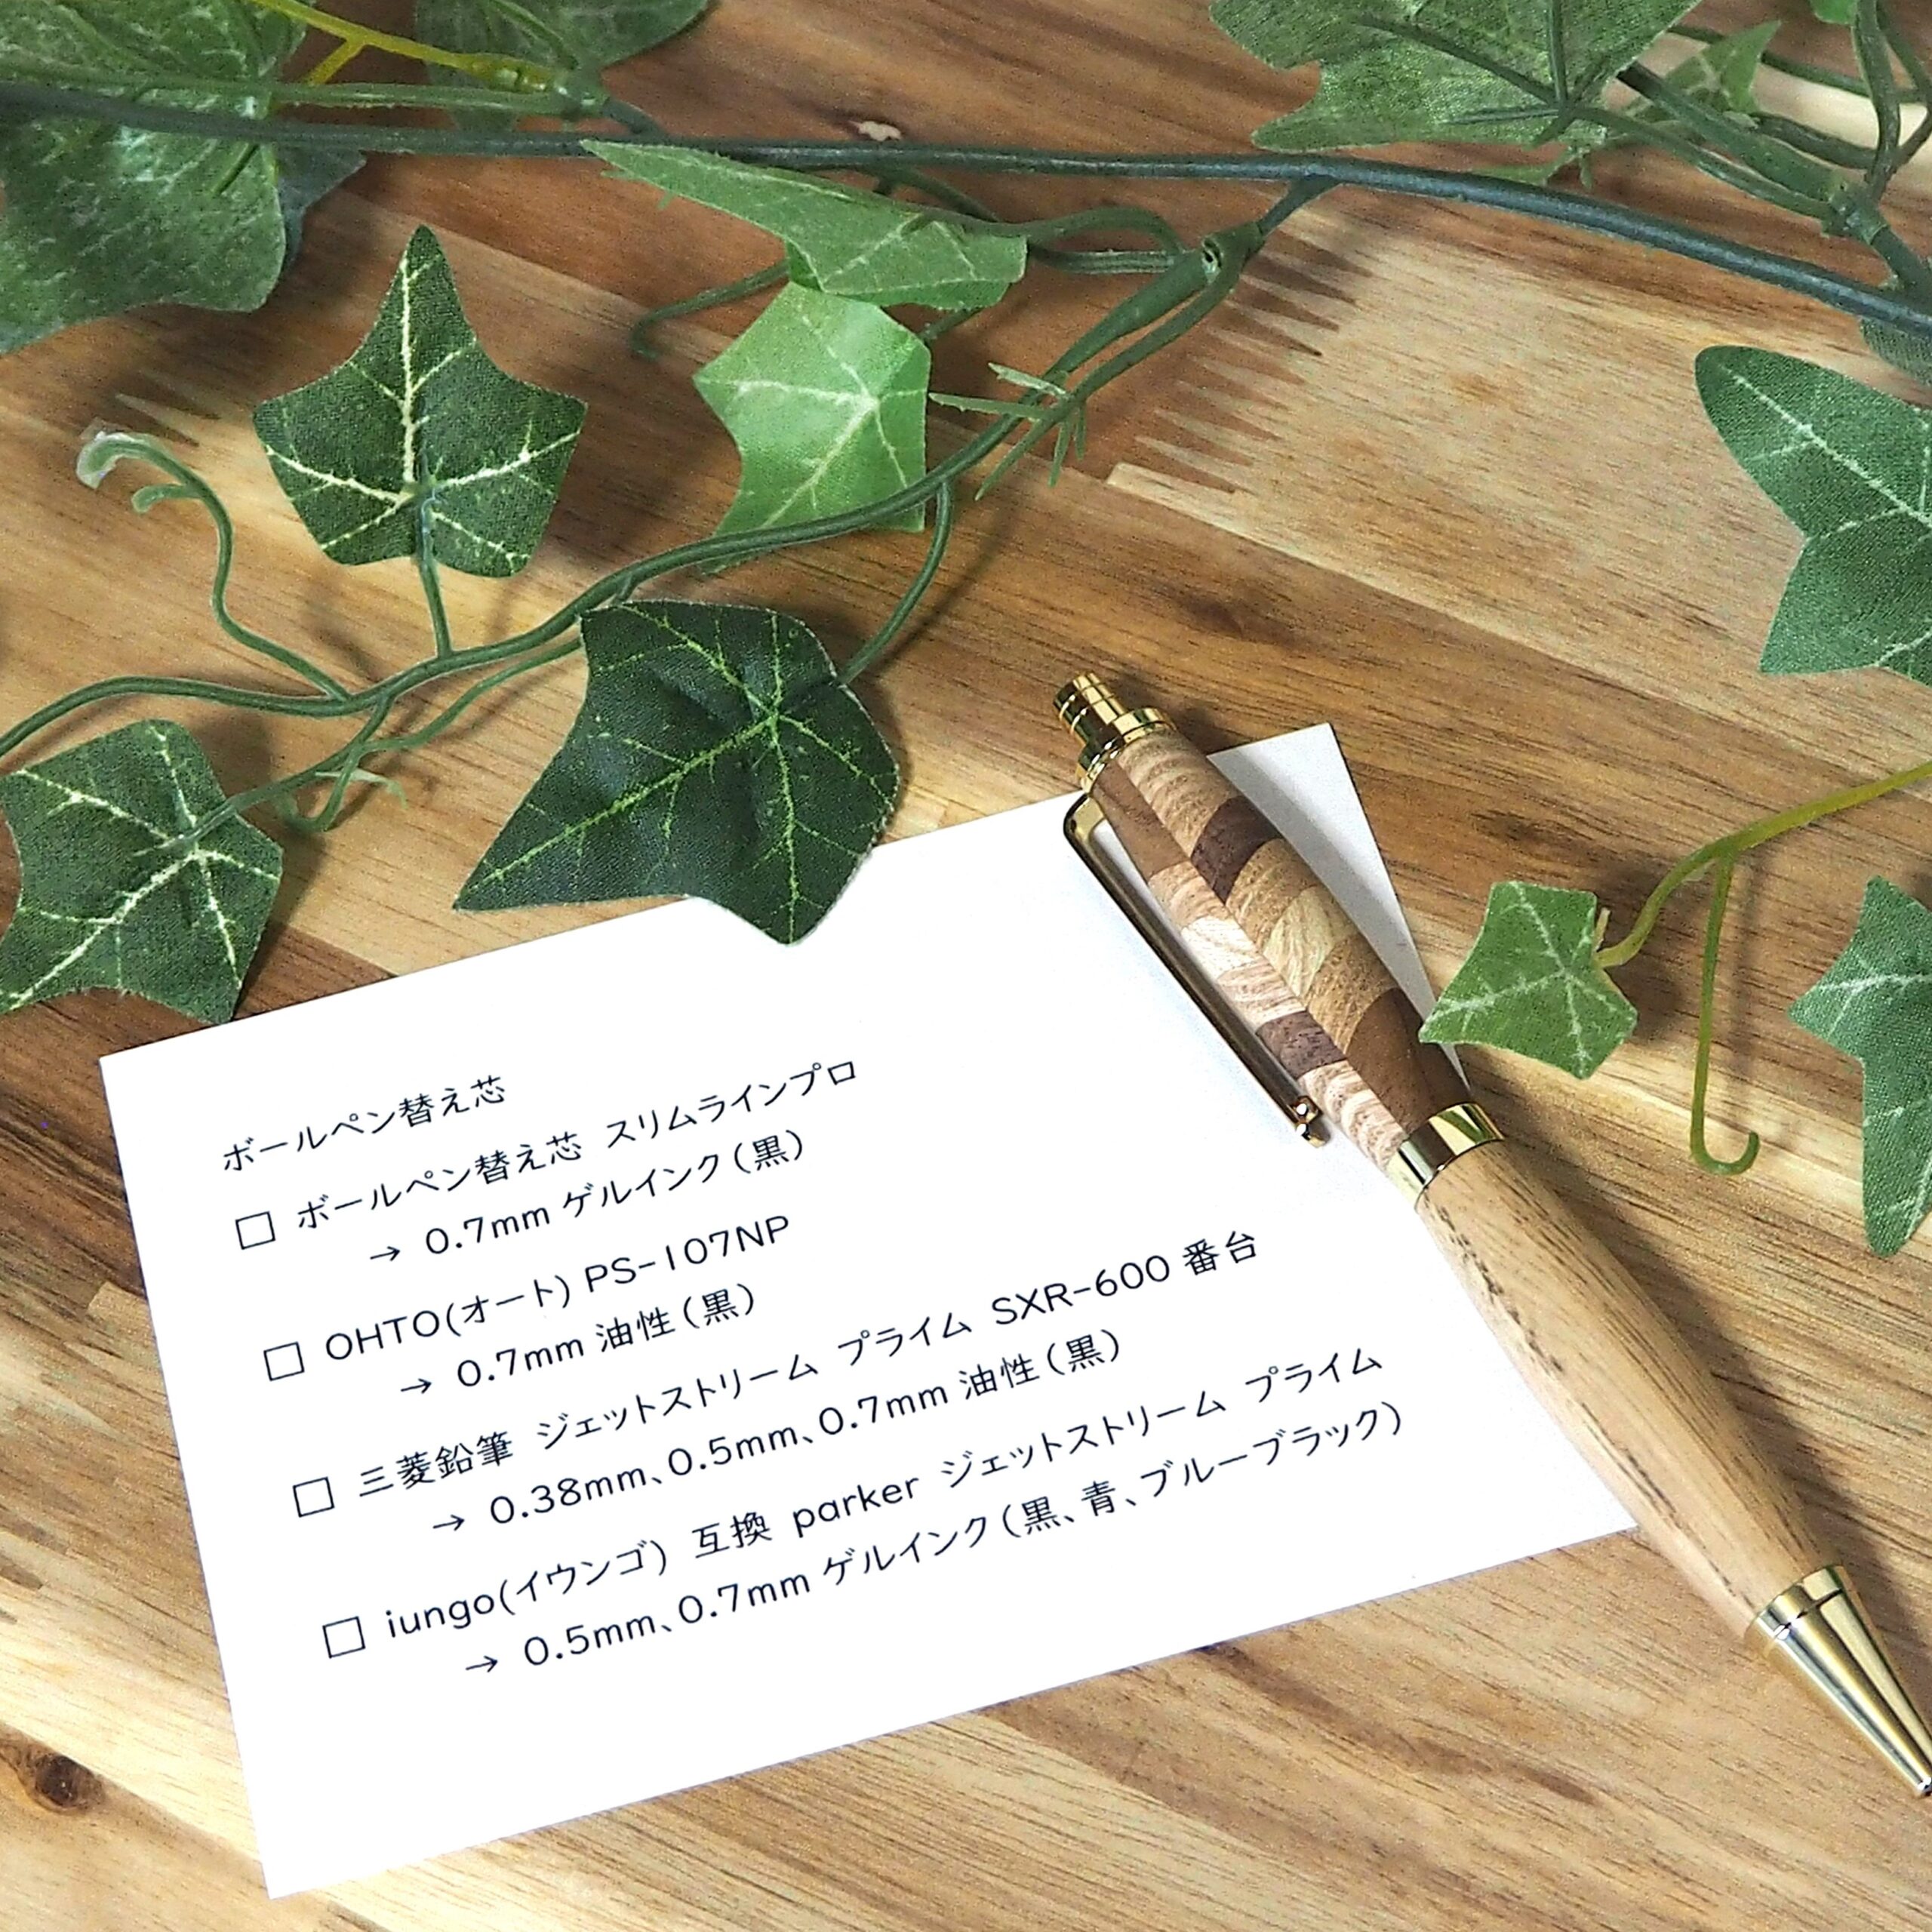 ボールペン替え芯
□ ボールペン替え芯 スリムラインプロ
→ 0.7mm ゲルインク(黒)
□ OHTO(オート) PS-107NP
→ 0.7mm 油性(黒)
□ 三菱鉛筆 ジェットストリーム プライム SXR-600 番台
→ 0.38mm、0.5mm、0.7mm 油性(黒)
□ iungo(イウンゴ) 互換 parker ジェットストリーム プライム
→ 0.5mm、0.7mm ゲルインク(黒、青、ブルーブラック)